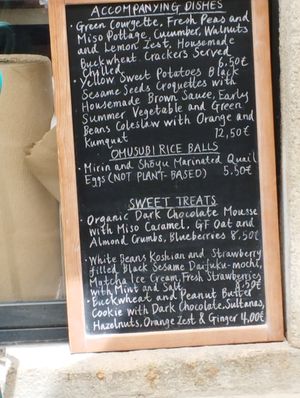 ACCOMPANYING DISHES
• Green Courgette, Fresh Peas and
Miso Pottage, Cucumber, Walnuts
and Lemon Zest, Housemade
Buckwheat Crackers Served
Chilled 6,50€
• Yellow Sweet Potatoes Black
Sesame Seeds Croquettes with
Housemade Brown Sauce, Early
Summer Vegetable and Green
Beans Coleslaw with Orange and
Kumquat 12,50€
OMUSUBI RICE BALLS
• Mirin and Shōyu Marinated Quail
Eggs (NOT PLANT-BASED) 5.50€
SWEET TREATS
• Organic Dark Chocolate Mousse
with Miso Caramel, GF Oat and
Almond Crumbs, Blueberries 8,50€
• White Beans Koshian and Strawberry
filled Black Sesame Daifuku-mochi,
Matcha Ice Cream, Fresh Strawberries
with Mint and Salt
• Buckwheat and Peanut Butter
Cookie with Dark Chocolate, Sultanas,
Hazelnuts, Orange Zest & Ginger 4,00€